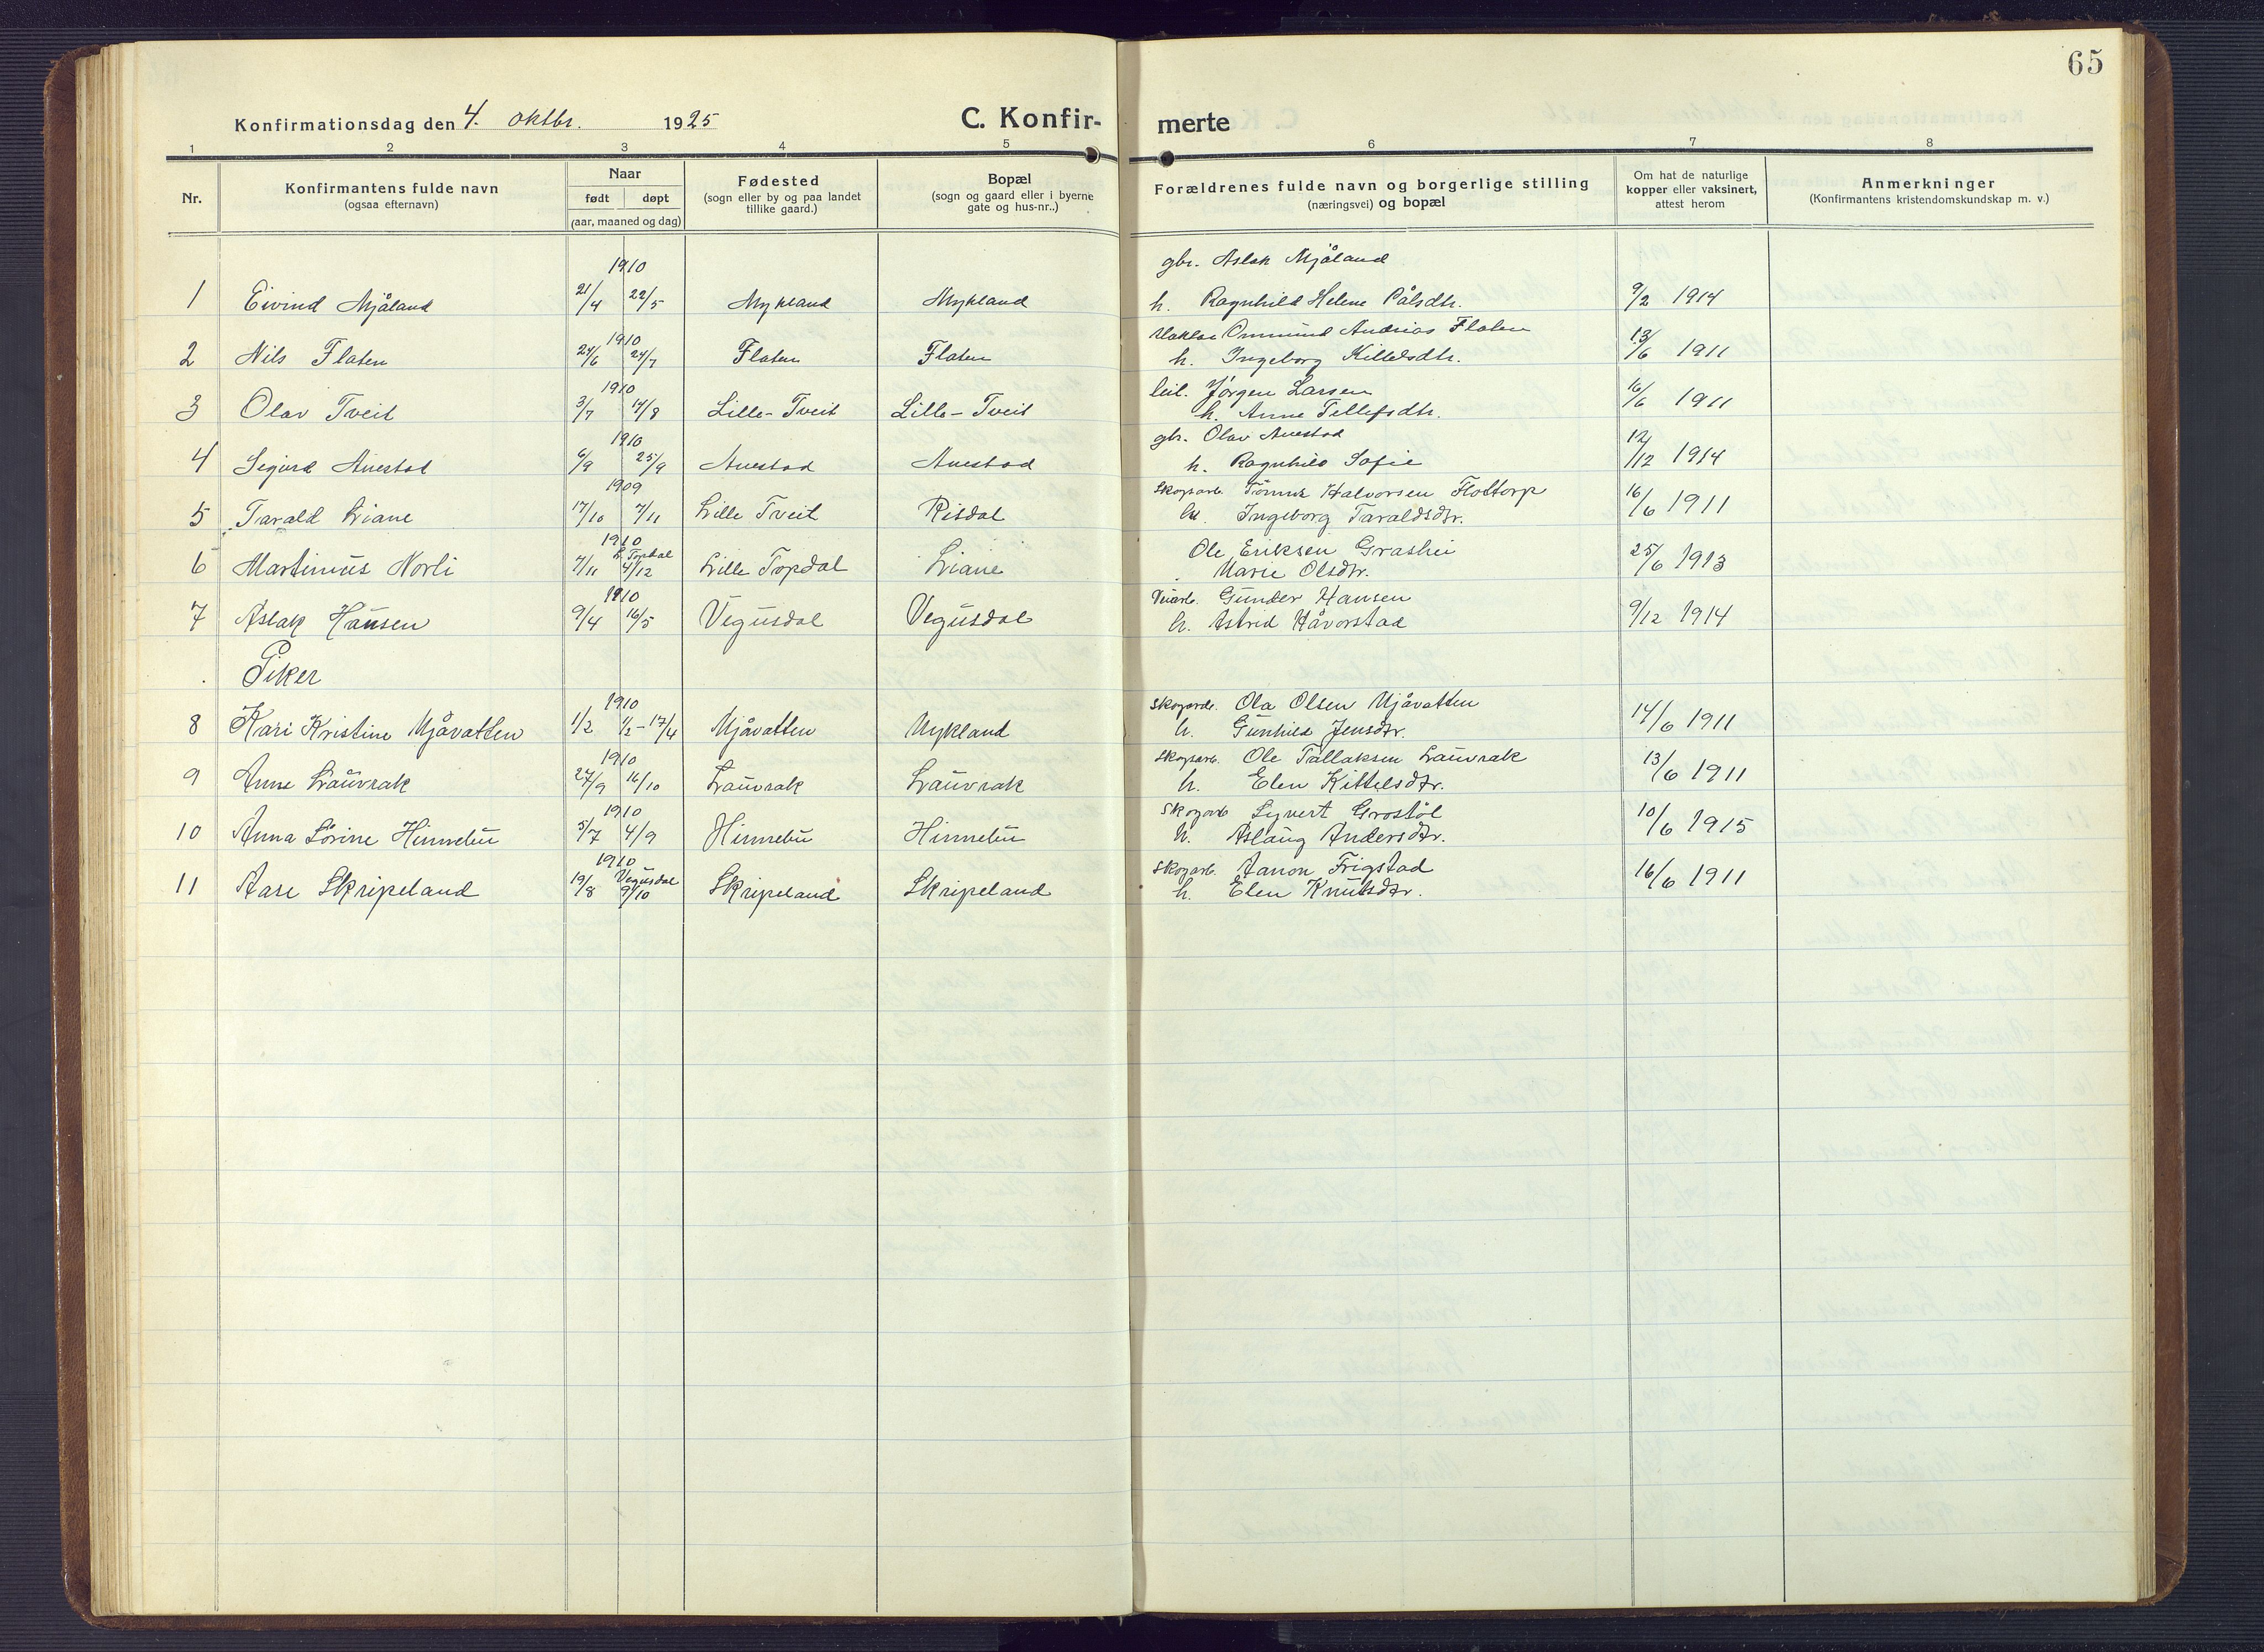 65
Konfirmationsdag den 4. oktbr. 1925
C. Konfir-
merte
1 2 3 4 5 6 7 8
Nr.
Konfirmantens fulde navn
(ogsaa efternavn)
Naar
født døpt
(aar, maaned og dag)
Fødested
(sogn eller by og paa landet
tillike gaard.)
Bopæl
(sogn og gaard eller i byerne
gate og hus-nr..)
Forældrenes fulde navn og borgerlige stilling
(næringsvei) og bopæl
Om hat de naturlige
kopper eller vaksinert,
attest herom
Anmerkninger
(Konfirmantens kristendomskundskap m. v.)
1910 gbr. Aslak Mjåland
1 Eivind Mjåland 21/4 22/5 Mykland Mykland h. Ragnhild Helene Pålsdtr. 9/2 1914
1910 Ommund Andrias Flaten
2 Nils Flaten 24/6 24/7 Flaten Flaten h. Ingeborg Kittelsdtr. 13/6 1911
1910 leil. Jørgen Larsen
3 Olav Tveit 3/7 14/8 Lille-Tveit Lille-Tveit h. Anne Tellefsdtr. 16/6 1911
1910 gbr. Olav Auestad
4 Sigurd Auestad 6/9 25/9 Auestad Auestad h. Ragnhild Sofie 12/12 1914
1909 Skogsarb. Tønnes Halvorsen Flottorp
5 Tarald Liane 17/10 7/11 Lille Tveit Risdal h. Ingeborg Taraldsdtr. 16/6 1911
1910 L. Topdal Ole Eriksen Grashei
6 Martinius Norli 7/11 4/12 Lille Topdal Liane Marie Olsdtr. 25/6 1913
1910 Veiarb. Gunder Hansen
7 Aslak Hansen 9/4 16/5 Vegusdal Vegusdal h. Astrid Håvorstad 9/12 1914
Piker
1910 Skogarb. Ola Olsen Mjåvatten
8 Kari Kristine Mjåvatten 1/2 1/2-17/4 Mjåvatten Mykland h. Gunhild Jensdtr. 14/6 1911
1910 Skogsarb. Ole Tallaksen Lauvrak
9 Anne Lauvrak 27/9 16/10 Lauvrak Lauvrak h. Elen Kittelsdtr. 13/6 1911
1910 Skogarb Syvert Grostøl
10 Anna Sørine Hinnebu 5/7 4/9 Hinnebu Hinnebu h. Aslaug Andersdtr. 10/6 1915
1910 Vegusdal Skogarb. Aanon Frigstad
11 Aase Skripeland 19/8 9/10 Skripeland Skripeland h. Elen Knutsdtr. 16/6 1911